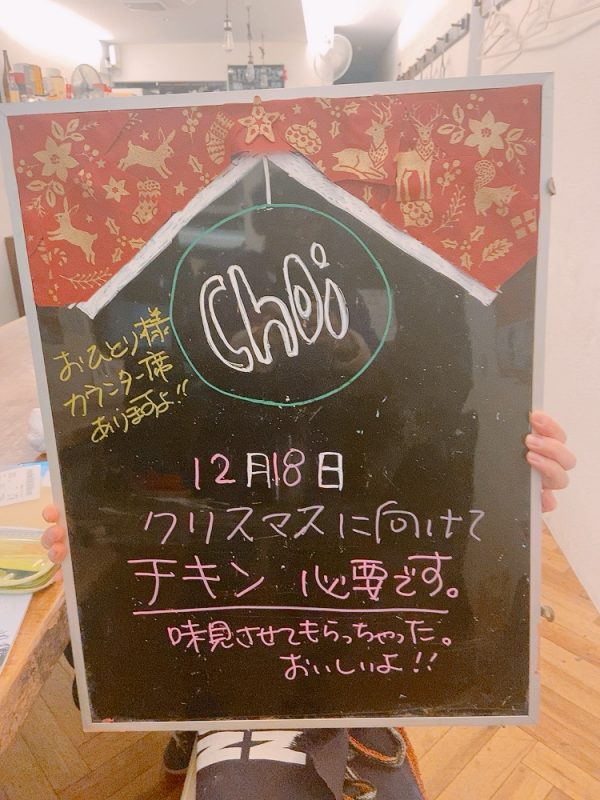 Choi
おひとり様
カウンター席
ありますよ!!
12月18日
クリスマスに向けて
チキン 必要です。
味見させてもらっちゃった。
おいしいよ!!